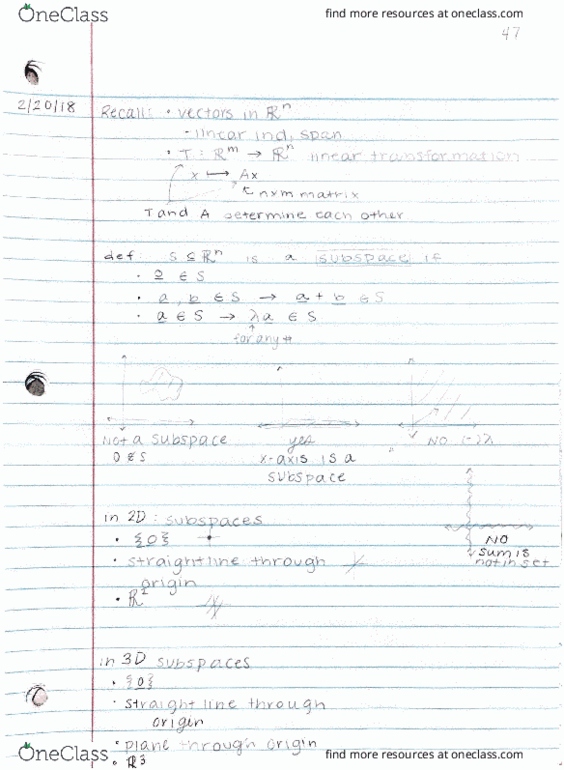 OneClass
find more resources at oneclass.com
47
2/20/18
Recall: • vectors in ℝⁿ
- linear ind, span
• T: ℝᵐ → ℝⁿ linear transformation
x ↦ Ax
nxm matrix
T and A determine each other
def: S ⊆ ℝⁿ is a subspace if
• 0 ∈ S
• a, b ∈ S → a + b ∈ S
• a ∈ S → λa ∈ S
for any #
Not a subspace
0 ∉ S
yes
x-axis is a
subspace
NO (-)λ
in 2D: subspaces
• {0}
• straight line through
origin
• ℝ²
NO
sum is
not in set
in 3D subspaces
• {0}
• straight line through
origin
• plane through origin
• ℝ³
OneClass
find more resources at oneclass.com